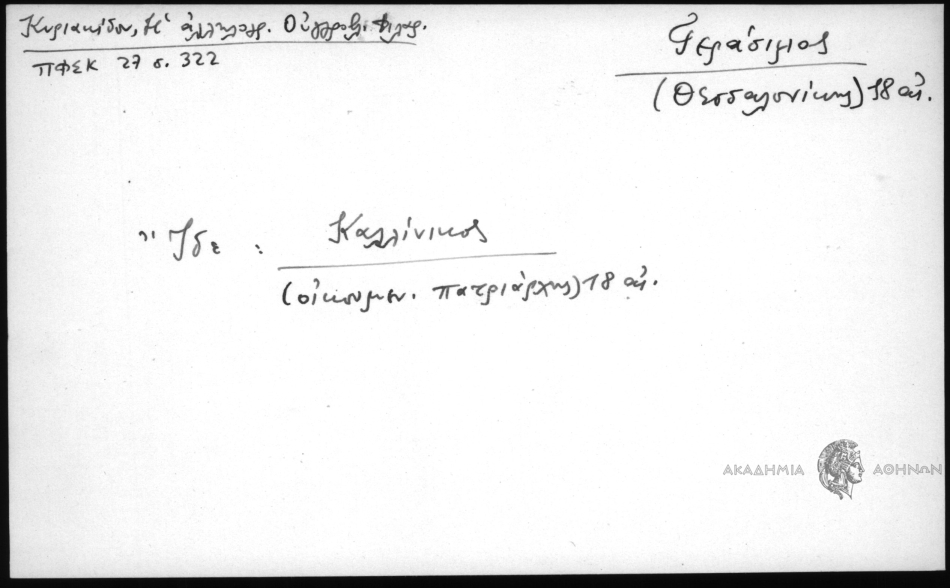 Κυριακίδου, Ἡ ἀλληλογρ. Οὑγγροβλ. Φιλαρ.
ΠΦΣΚ 27 σ. 322
Γεράσιμος
(Θεσσαλονίκης) 18 αἰ.
Ἴδε : Καλλίνικος
(οἰκουμεν. πατριάρχης) 18 αἰ.
ΑΚΑΔΗΜΙΑ ΑΘΗΝΩΝ